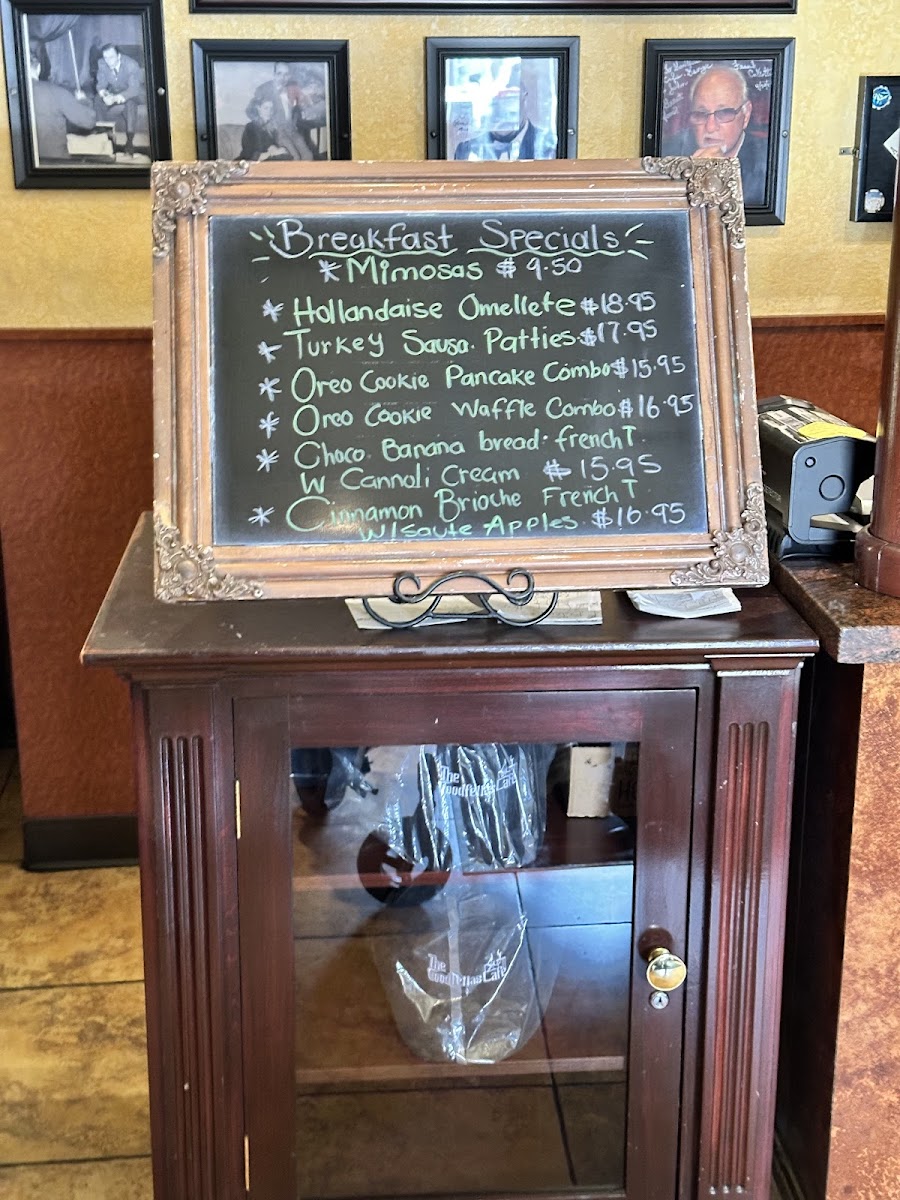 Breakfast Specials
* Mimosas $ 9.50
* Hollandaise Omellete $18.95
* Turkey Sausa. Patties $17.95
* Oreo Cookie Pancake Combo $15.95
* Oreo Cookie Waffle Combo $16.95
* Choco. Banana bread. french T.
W Cannoli Cream $15.95
* Cinnamon Brioche French T
W/saute Apples $16.95
The
Goodfellas Café
The
Goodfellas Café